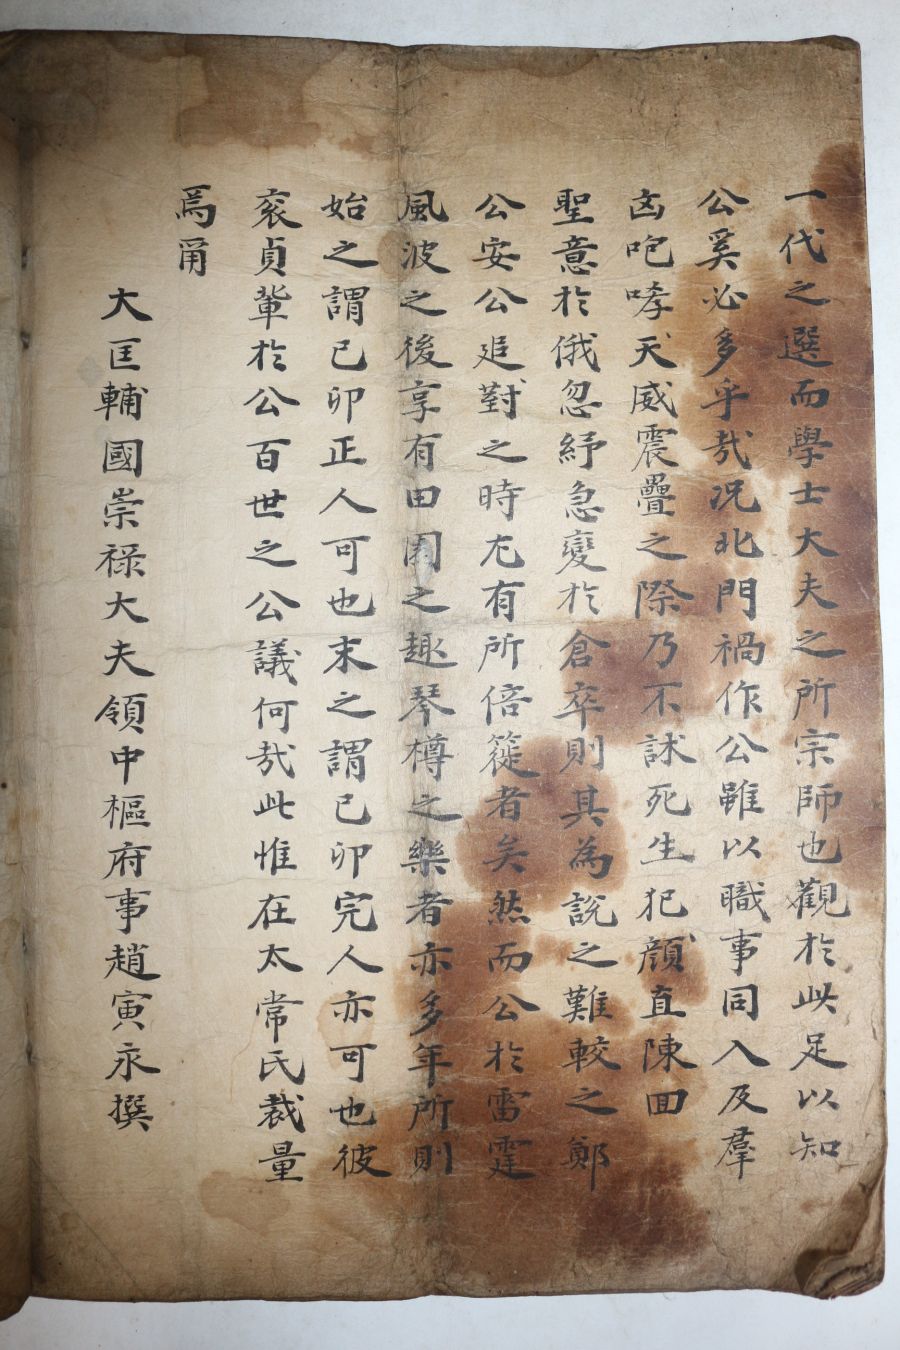 一代之選而學士大夫之所宗師也觀於此足以知
公奚必多乎㢤况北門禍作公雖以職事同入及羣
凶咆哮天威震疊之際乃不訹死生犯顔直陳回
聖意於俄忽紓急變於倉卒則其為說之難較之鄭
公安公追對之時尤有所倍蓰者矣然而公於雷霆
風波之後享有田園之趣琴樽之樂者亦多年所則
始之謂己卯正人可也末之謂己卯完人亦可也彼
衮貞輩於公百世之公議何㢤此惟在太常氏裁量
焉甭
大匡輔國崇祿大夫領中樞府事趙寅永撰